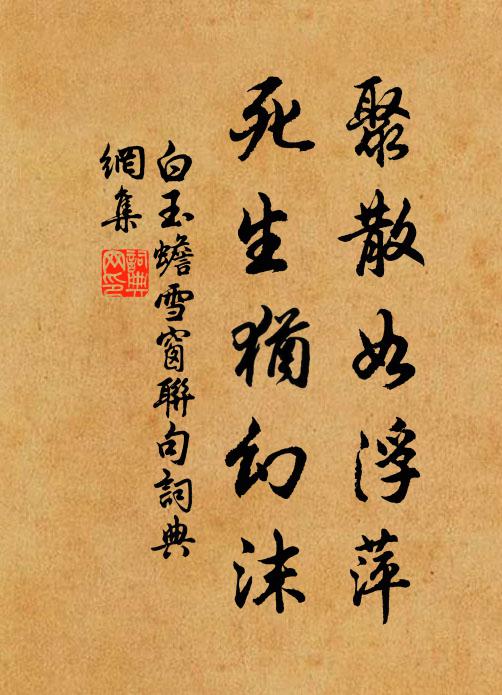 聚散如浮萍
死生犹幻沫
白玉蟾雪窗聯句詞典
網集
詞典
网印